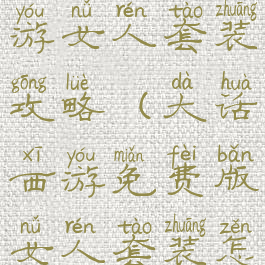 yóu nǚ rén tào zhuāng
游女人套装
gōng lüè dà huà
攻略(大话
xī yóu miǎn fèi bǎn
西游免费版
nǚ rén tào zhuāng zěn
女人套装怎